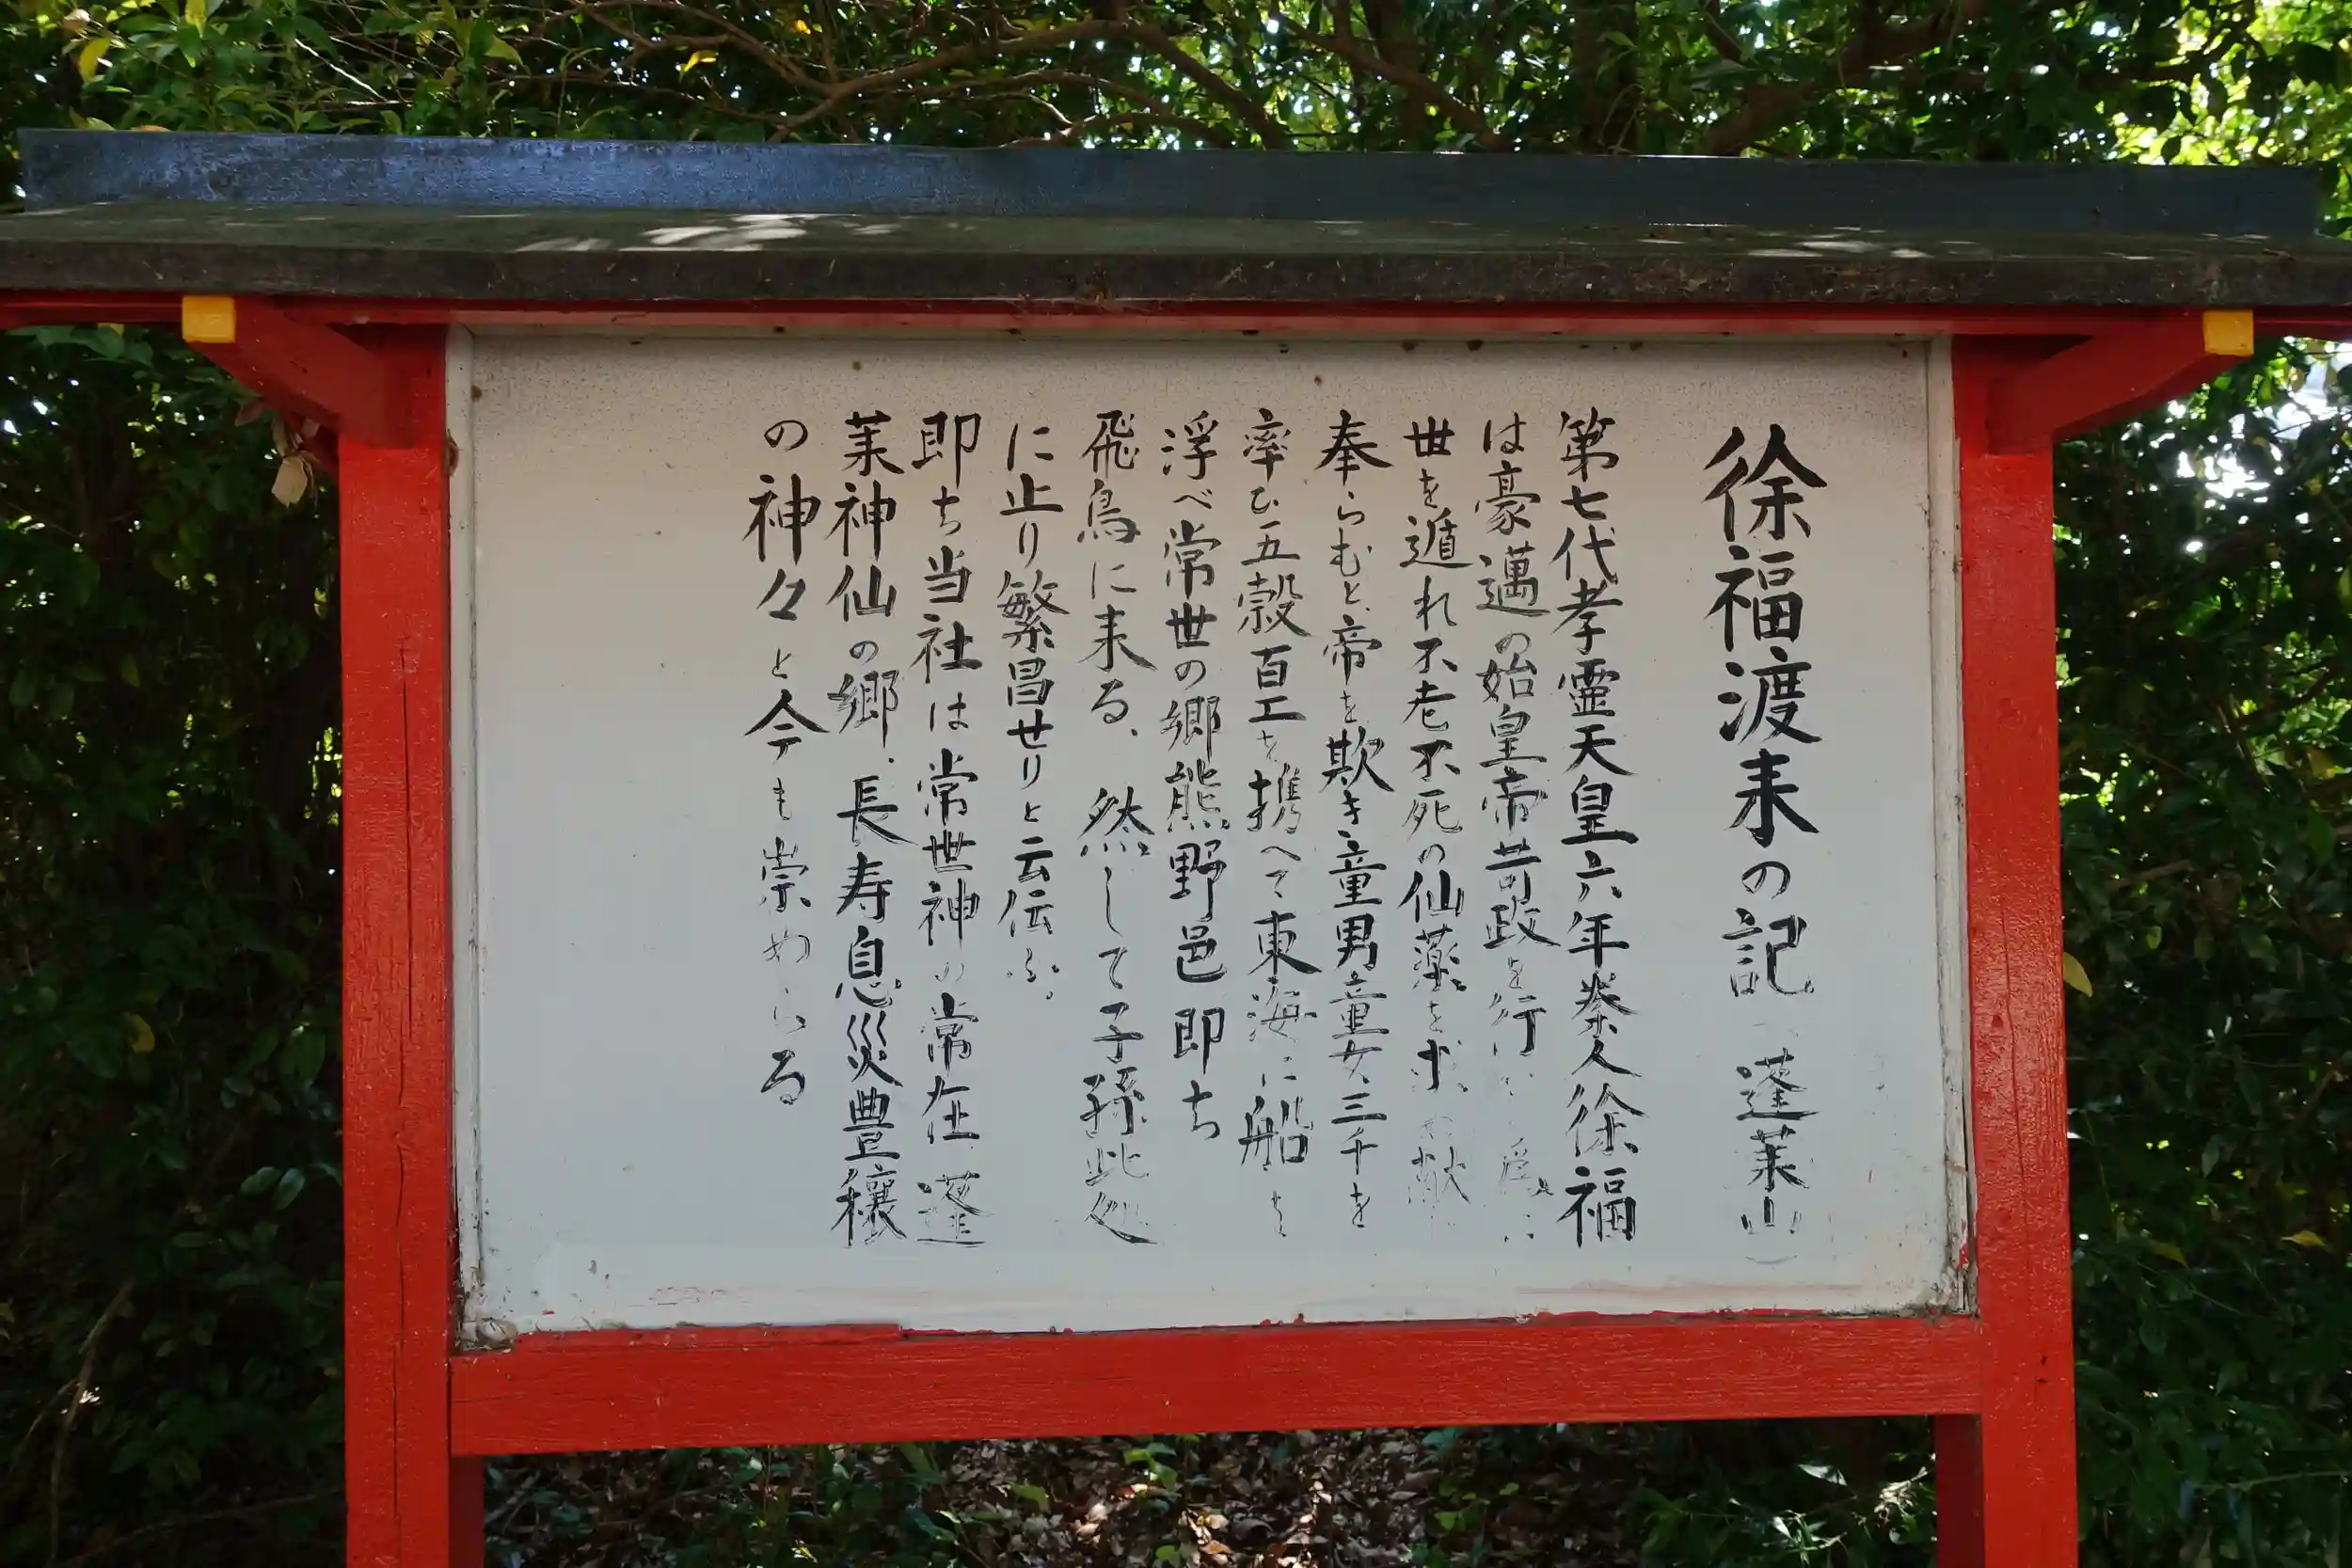 徐福渡来の記（蓬莱山）
第七代孝霊天皇六年秦人徐福
は豪邁の始皇帝苛政を行い為に
世を遁れ不老不死の仙薬を求め献
奉らむと、帝を欺き童男童女三千を
率ひ五穀百工を携へて東海に船を
浮べ常世の郷熊野邑即ち
飛鳥に来る、然して子孫此処
に止り繁昌せりと云伝ふ。
即ち当社は常世神の常在、蓬
莱神仙の郷、長寿息災豊穣
の神々と今も崇めらる